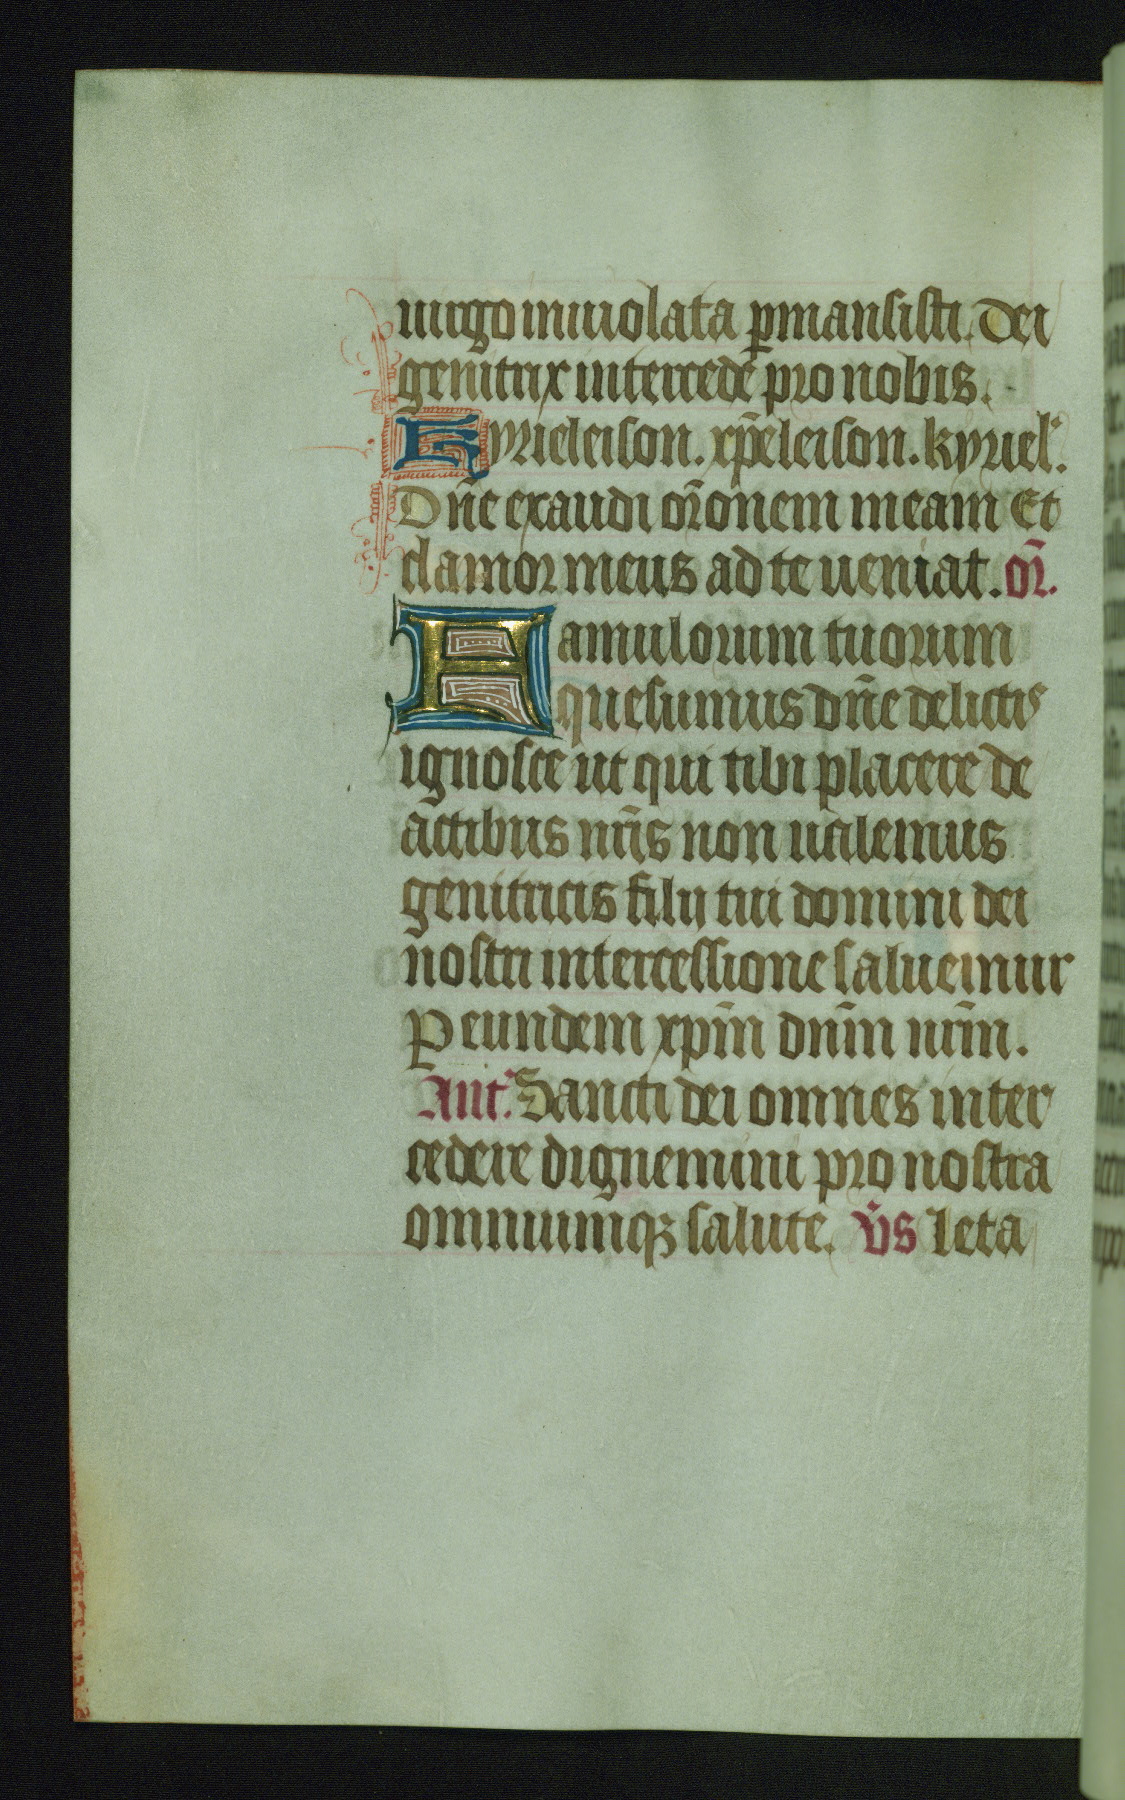 uirgo inuiolata p̲mansisti. Dei
genitrix intercede pro nobis.
Kyrieleison. xp̄eleison. kyriel'.
Dn̄e exaudi or̄onem meam Et
clamor meus ad te ueniat. or̄.
Famulorum tuorum
quesumus dn̄e delictis
ignosce ut qui tibi placere de
actibus nr̄is non ualemus
genitricis filij tui domini dei
nostri intercessione saluemur
P eundem xpm̄ dnm̄ nrm̄.
Ant'. Sancti dei omnes inter
cedere dignemini pro nostra
omniumqꝫ salute. v̄s leta